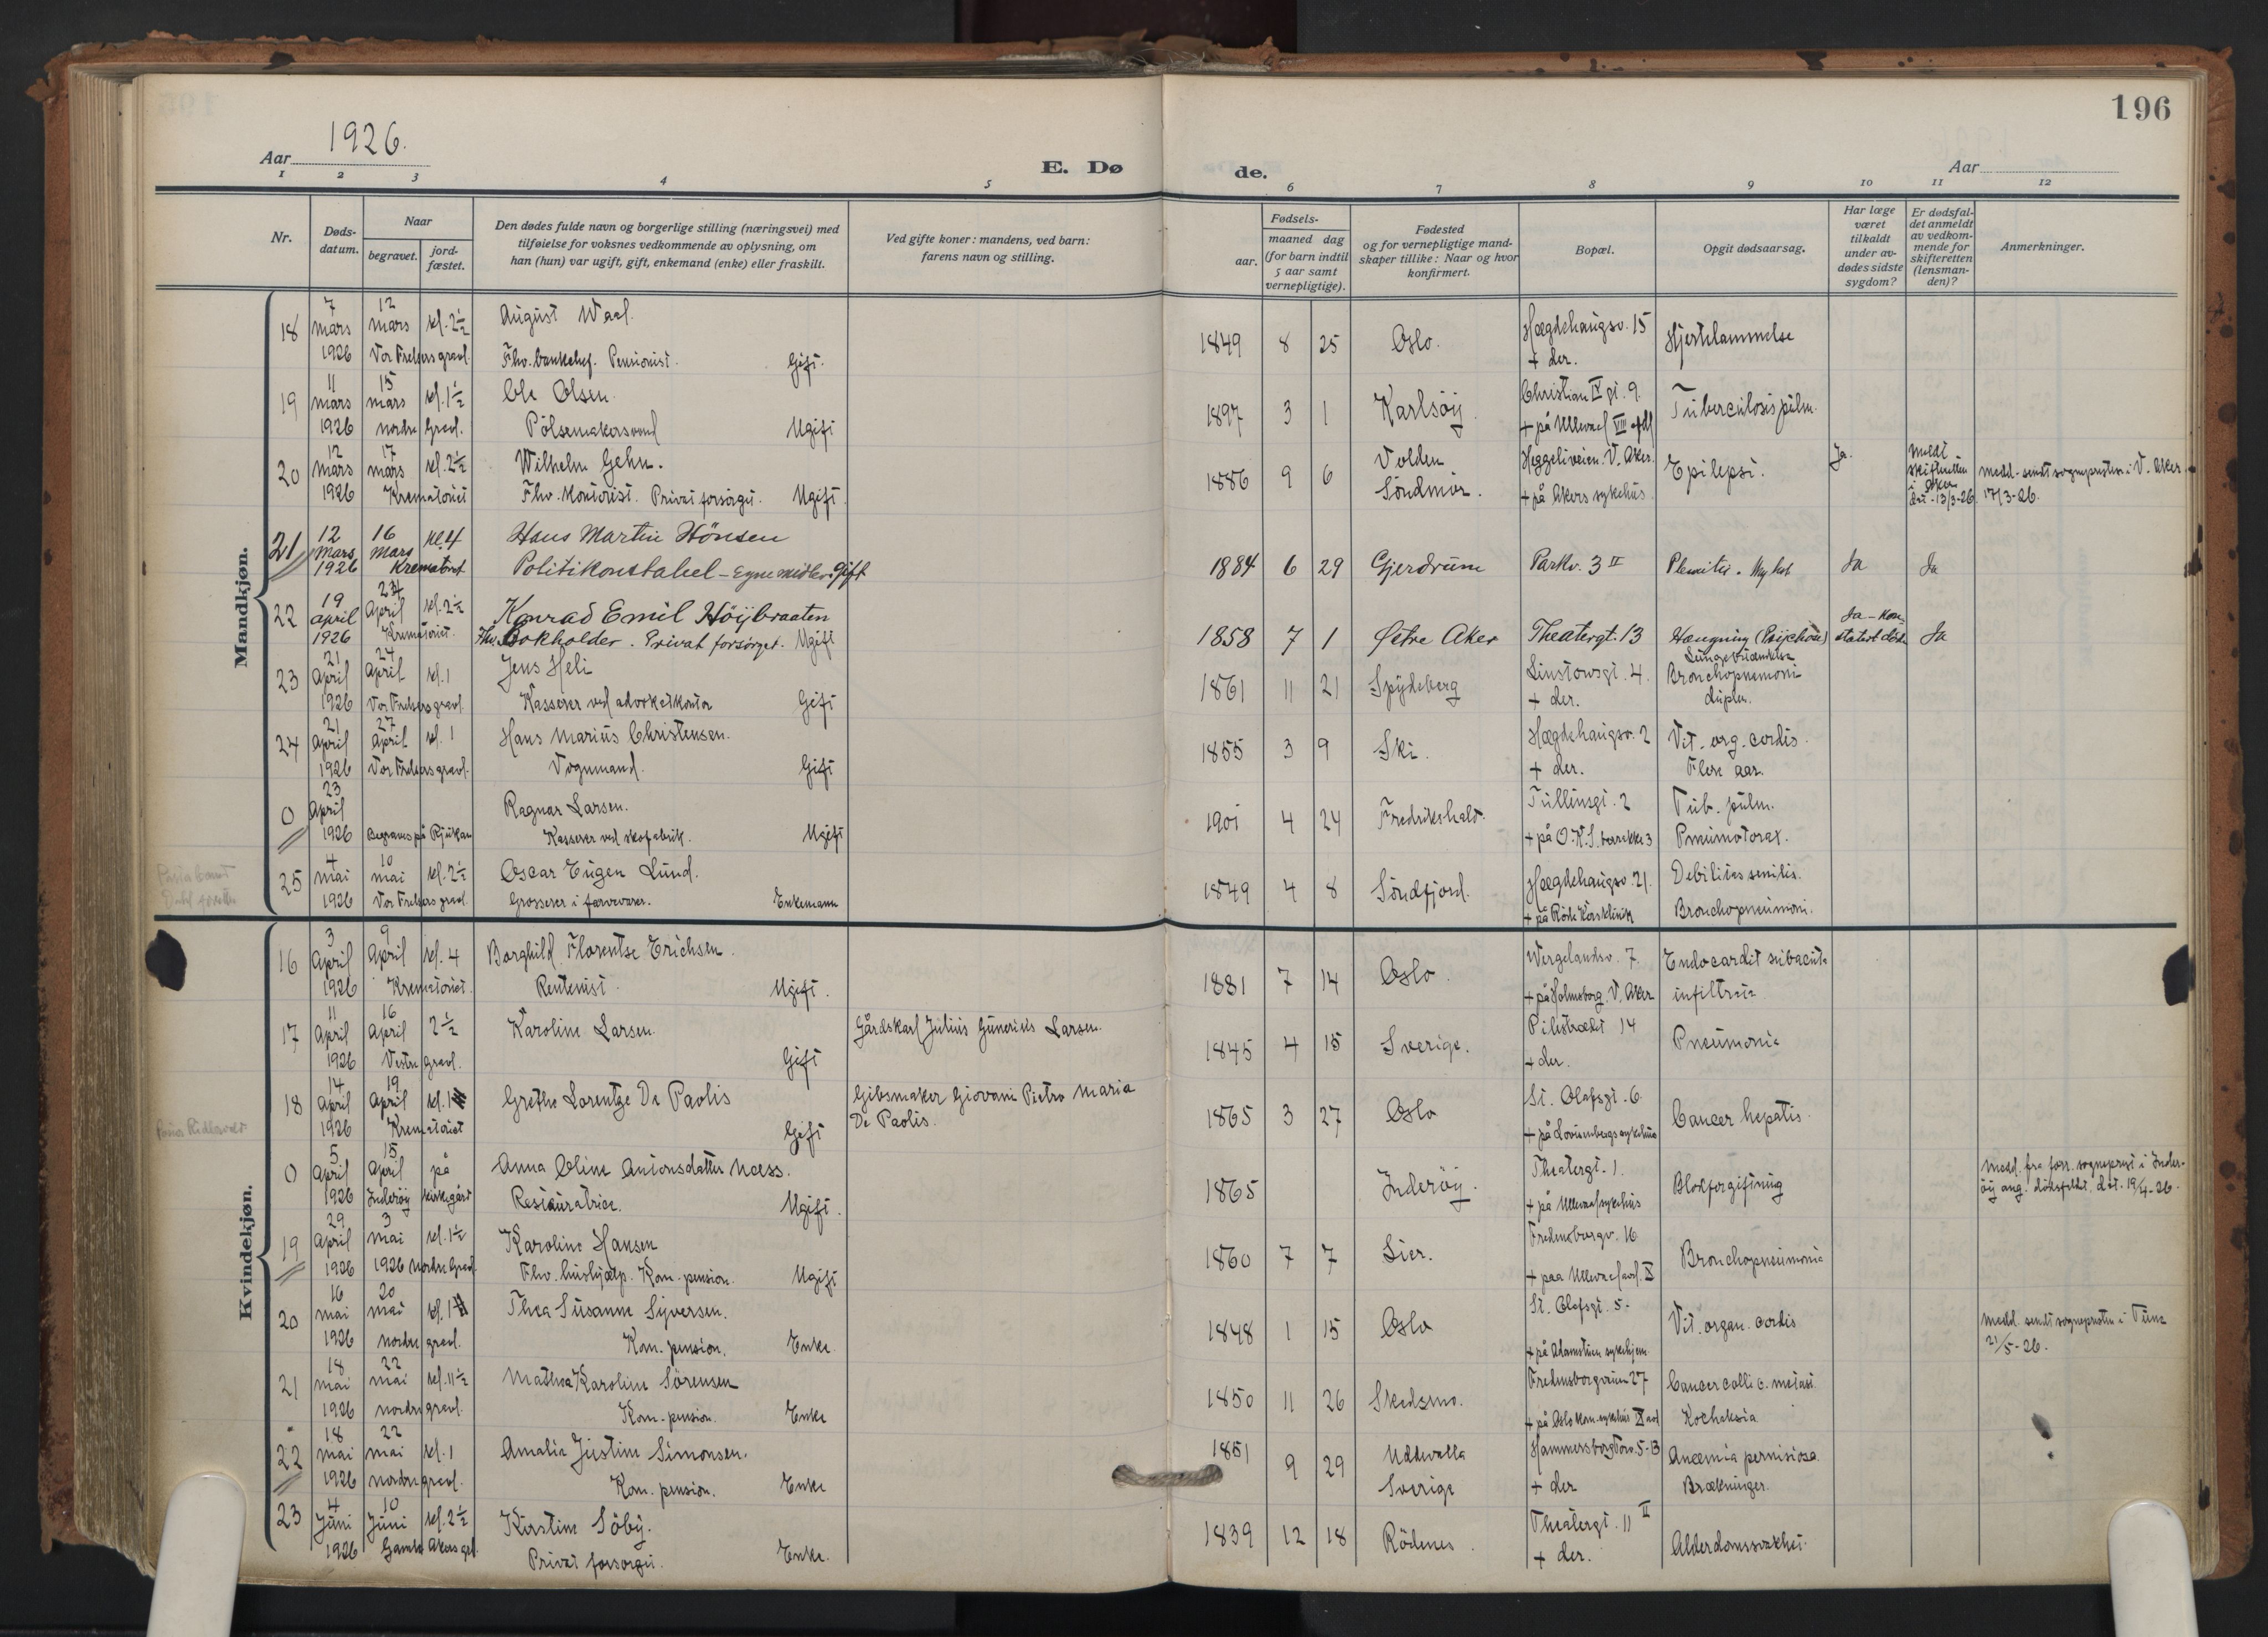 196
Aar 1926.
E. Døde.
Aar
1 2 3 4 5 6 7 8 9 10 11 12
Nr.
Dødsdatum.
Naar
begravet.
jordfæstet.
Den dødes fulde navn og borgerlige stilling (næringsvei) med
tilføielse for voksnes vedkommende av oplysning, om
han (hun) var ugift, gift, enkemand (enke) eller fraskilt.
Ved gifte koner: mandens, ved barn:
farens navn og stilling.
Fødsels-
aar.
maaned dag
(for barn indtil
5 aar samt
vernepligtige).
Fødested
og for vernepligtige mand-
skaper tillike: Naar og hvor
konfirmert.
Bopæl.
Opgit dødsaarsag.
Har læge
været
tilkaldt
under av-
dødes sidste
sygdom?
Er dødsfal-
det anmeldt
av vedkom-
mende for
skifteretten
(lensman-
den)?
Anmerkninger.
Mandkjøn.
18 7 mars 1926 12 mars kl. 2½ Vor Frelsers gravl.
August Waal.
Fhv. bankchef. Pensionist. Gift.
1849 8 25 Oslo. Hægdehaugsv. 15 + der. Hjertelammelse
19 11 mars 1926 15 mars kl. 1½ nordre Gravl.
Ole Olsen.
Pölsemakersvend Ugift
1897 3 1 Karlsöy Christian IV gt. 9. + på Ullevaal VIII afdl Tuberculosis pulm.
20 12 mars 1926 17 mars kl. 2½ Krematoriet
Wilhelm Gehn.
Fhv. Kontorist. Privat forsörget. Ugift
1886 9 6 Volden Söndmör. Heggeliveien. V. Aker. + på Akers sykehus Epilepsi. Ja. Meldt skifteretten i Aker dat. 13/3-26. medd. sendt sogneprsten i V. Aker 17/3-26.
21 12 Mars 1926 16 Mars kl. 4 Krematoriet
Hans Martin Hönsen
Politikonstabel - Egne midler. Gift
1884 6 29 Gjerdrum Parkv. 3 II Ja Ja
22 19 april 1926 24 April kl. 2½ Krematoriet.
Konrad Emil Höijbraaten
Fhv. Bokholder. Privat forsörget. Ugift
1858 7 1 Østre Aker Theatergt. 13 Hængning (Psijchose) Ja - konstatert död Ja
23 21 April 1926 24 April kl. 1 Vor Frelsers gravl.
Jens Heli
Kasserer ved advokatkontor Gift
1861 11 21 Spydeberg Linstowsgt. 4. + der. Lungebetændelse Bronchopnemoni duplex.
24 21 April 1926 27 April kl. 1 Vor Frelsers gravl.
Hans Marius Christensen.
Vognmand. Gift
1855 3 9 Ski. Hægdehaugsv. 2 + der. Vit. org. cordis. Flere aar.
0 23 April 1926 Begraves på Rjukan
Ragnar Larsen.
Kasserer ved skofabrik. Ugift
1901 4 24 Fredrikshald. Tullinsgt. 2 + på O.K.S. barakke 3 Tub. pulm. Pneumotorax.
25 4 mai 1926 10 mai kl. 2½ Vor Frelsers gravl.
Oscar Eugen Lund.
Grosserer i farvevarer. Enkemann
1849 4 8 Söndfjord. Hægdehaugsv. 21. + på Röde Kors klinik Debilitas senilis. Bronchopneumoni.
Kvindekjøn.
16 3 April 1926 9 April kl. 4 Krematoriet.
Borghild Florentse Erichsen.
Rentenist. Ugift.
1881 7 14 Oslo. Wergelandsv. 7. + på Holmsborg. V. Aker Endocardit subacute
17 11 April 1926 16 April 2½ Vestre gravl.
Karoline Larsen. Gift
Gårdskarl Julius Gunerius Larsen.
1845 4 15 Sverige. Pilestrædet 14 + der. Pneumonie
18 14 April 1926 19 April kl. 1 Krematoriet
Grethe Lorentze De Paolis Gift
Gibsmaker Giovani Pietro Maria
De Paolis.
1865 3 27 Oslo St. Olafsgt. 6. + på Lovisenbergs sykehus Cancer hepatis.
0 5 April 1926 15 April på Inderöy kirkegård
Anna Oline Antonsdatter Næss.
Restauratrice. Ugift.
1865 Inderöy. Theatergt. 1. + på Ullevaal sykehus Blodforgiftning Medd. fra forr. sogneprest i Inderöy ang. dödsfaldet, dat. 19/4-26.
19 29 April 1926 3 mai 1926 kl. 1½ Nordre Gravl.
Karoline Hansen
Fhv. hushjælp. Kom. pension. Ugift
1860 7 7 Lier. Fredensborgv. 16 + paa Ullevaal avd. X Bronchopneumonie
20 16 mai 1926 20 mai kl. 1 nordre gravl.
Thea Susanne Syversen.
Kom. pension. Enke.
1848 1 15 Oslo St. Olafsgt. 5. + på Adamstuen sykehjem Vit. organ. cordis Medd. sendt sogneprsten i Tune 21/5-26.
21 18 mai 1926 22 mai kl. 11½ nordre gravl.
Mathea Karoline Sörensen
Kom. pension. Enke
1850 11 26 Skedsmo. Fredensborgveien 27 + på Oslo kom. sykehus X avd Cancer colli c. metast. Kocheksia
22 18 mai 1926 22 mai kl. 1 nordre gravl.
Amalie Justine Simonsen.
Kom. pension. Enke
1851 9 29 Uddevalla Sverige Hammersborg Torv. 5-B + der Anæmia pernisiosa. Brækninger.
23 4 Juni 1926 10 Juni kl. 2½ Gamle Akers grl.
Kirstine Söby.
Privat forsorget. Enke.
1839 12 18 Rödenes. Theatergt. 11 II + der. Alderdomssvakhet.